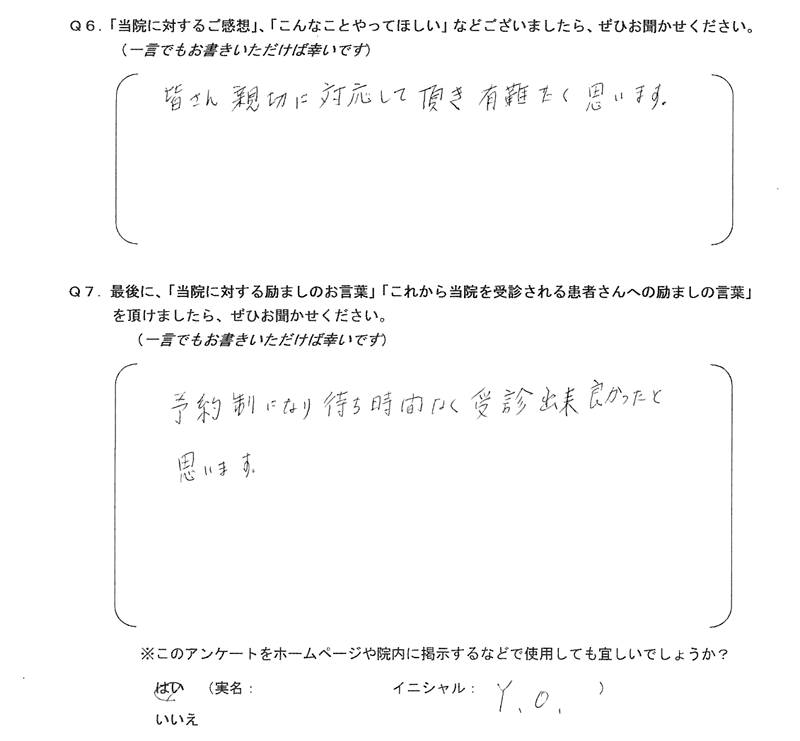 Q6.「当院に対するご感想」、「こんなことやってほしい」などございましたら、ぜひお聞かせください。
（一言でもお書きいただけば幸いです）
皆さん親切に対応して頂き有難たく思います。
Q7．最後に、「当院に対する励ましのお言葉」「これから当院を受診される患者さんへの励ましの言葉」
を頂けましたら、ぜひお聞かせください。
（一言でもお書きいただけば幸いです）
予約制になり待ち時間なく受診出来良かったと
思います。
※このアンケートをホームページや院内に掲示するなどで使用しても宜しいでしょうか？
はい （実名： イニシャル： Y.O. ）
いいえ